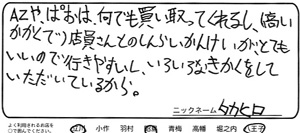 AZや、ぱおは、何でも買い取ってくれるし、(高い
かかくで)店員さんとのしんらいかんけいがとても
いいので行きやすいし、いろいろなきかくをして
いただいているから。
ニックネーム タカヒロ
よく利用されるお店を
○で囲んでください。
小作 羽村 青梅 高幡 堀之内 八王子